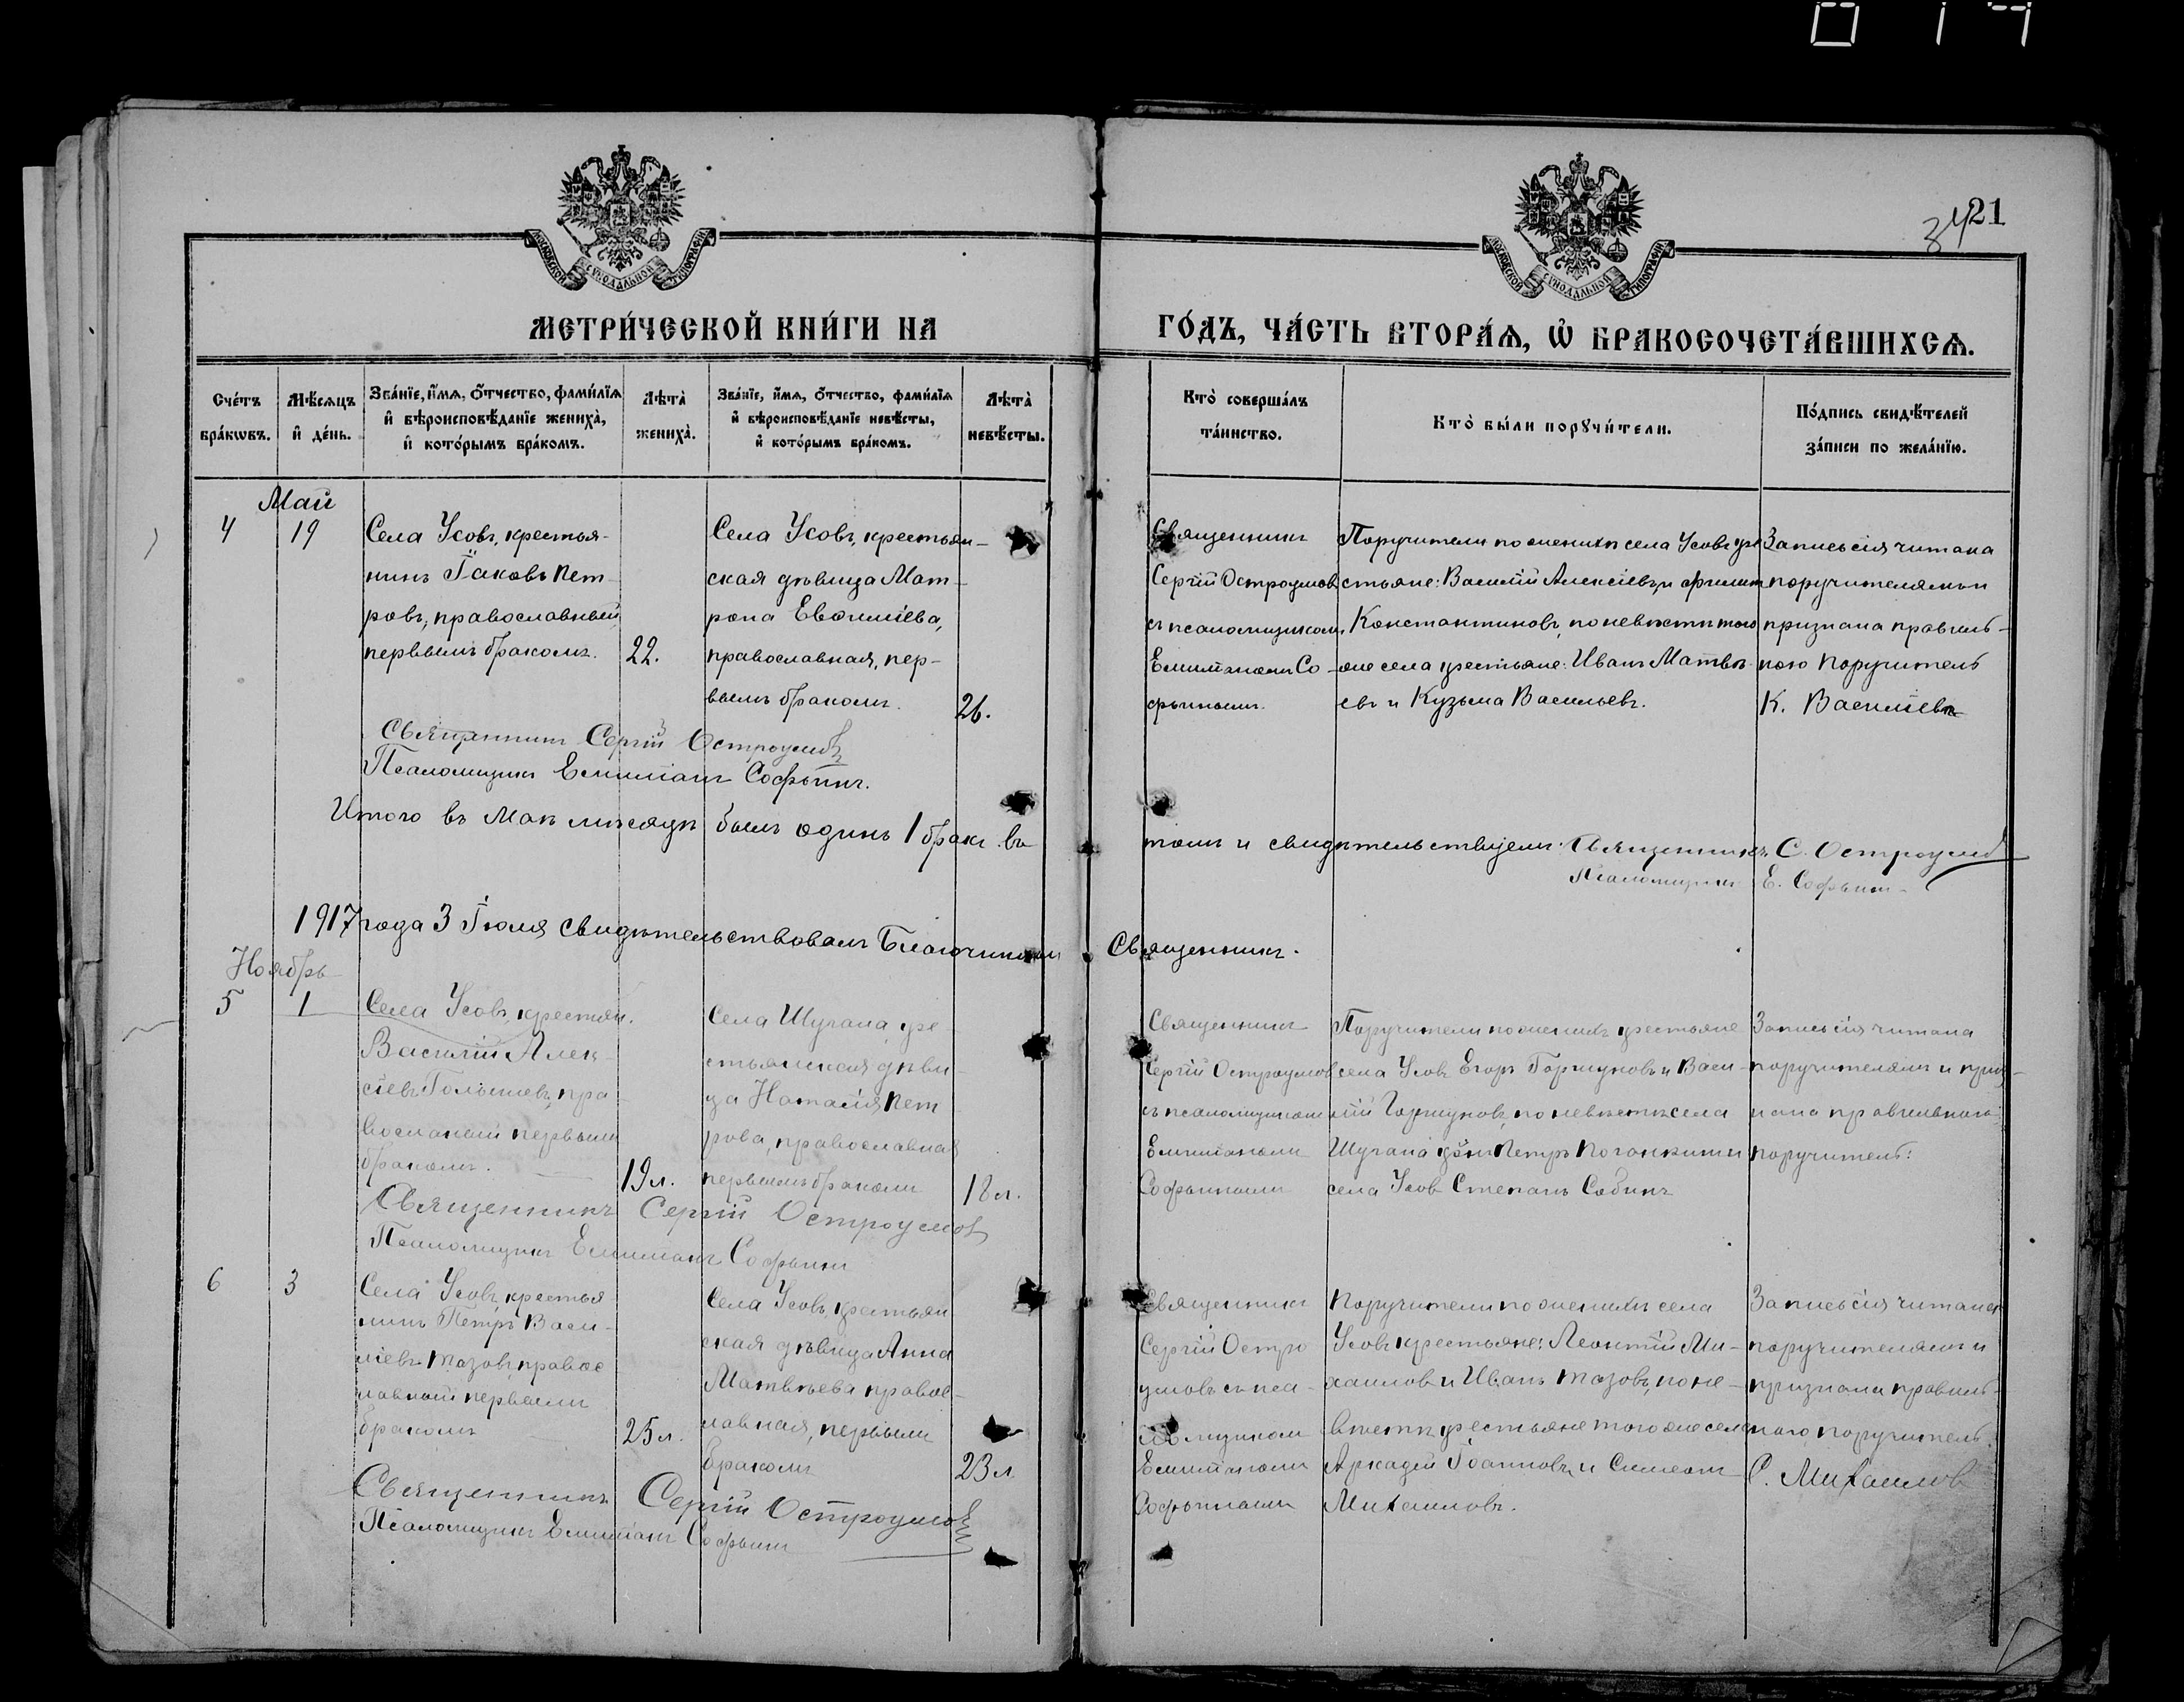 34 21
МОСКОВСКОЙ СѴНОДАЛЬНОЙ ТИПОГРАФІИ
МОСКОВСКОЙ СѴНОДАЛЬНОЙ ТИПОГРАФІИ
МЕТРИ́ЧЕСКОЙ КНИ́ГИ НА
ГО́ДЪ, ЧА́СТЬ ВТОРА́Ѧ, Ѡ҆ БРАКОСОЧЕТА́ВШИХСѦ.
Сче́тъ
бра́кѡвъ.
Мѣ́сѧцъ
и҆ де́нь.
Зва́нїе, и҆́мѧ, ѻ҆́тчество, фами́лїѧ
и҆ вѣроисповѣ́данїе жениха̀,
и҆ кото́рымъ бра́комъ.
Лѣта̀
жениха̀.
Зва́нїе, и҆́мѧ, ѻ҆́тчество, фами́лїѧ
и҆ вѣроисповѣ́данїе невѣ́сты,
и҆ кото́рымъ бра́комъ.
Лѣта̀
невѣ́сты.
Кто̀ соверша́лъ
та́инство.
Кто̀ бы́ли порꙋчи́тели.
По́дпись свидѣ́телей
за́писи по жела́нїю.
Май
4
19
Села Усовъ, крестья-
нинъ Іаковъ Пет-
ровъ, православный,
первымъ бракомъ.
22.
Села Усовъ, крестьян-
ская дѣвица Мат-
рона
православная, пер-
вымъ бракомъ.
26.
Священникъ
Сергій Остроумовъ
съ псаломщикомъ
Емиліаномъ Со-
фьинымъ.
Поручители по женихѣ села Усовъ кре
стьяне: Василій Алексіевъ, и Филипп
Константиновъ, по невѣстѣ того
же села крестьяне: Иванъ Матвѣ-
евъ и Кузьма Васильевъ.
Запись сія читана
поручителямъ и
признана правиль-
ною поручитель
К. Василіевъ
Священникъ Сергій Остроумовъ
Псаломщикъ Емиліанъ Софьинъ.
Итого въ Маѣ мѣсяцѣ былъ одинъ 1 бракъ. въ
томъ и свидѣтельствуемъ: Священникъ С. Остроумовъ
Псаломщикъ Е. Софьинъ
1917 года 3 Іюля свидѣтельствовалъ Благочинный
Священникъ.
Ноябрь
5
1
Села Усовъ, крестьян.
Василій Алек-
сіевъ пра-
вославный первымъ
бракомъ.
19 л.
Села Шугана, кре
стьянская дѣви-
ца Наталія Пет
рова, православная
первымъ бракомъ
18 л.
Священникъ
Сергій Остроумов
съ псаломщикомъ
Емиліаномъ
Софьинымъ
Поручители по женихѣ крестьяне
села Усовъ Егоръ Горшуновъ и Васи-
лій Горшуновъ, по невѣстѣ села
Шугана Петръ
села Усов Степанъ Собинъ
Запись сія читана
поручителямъ и приз-
нана правильною:
поручитель:
Священникъ Сергій Остроумов
Псаломщикъ Емиліанъ Софьинъ
6
3
Села Усовъ, крестья-
нинъ Петръ Васи-
ліевъ Тазовъ, правос
лавный первымъ
бракомъ
25 л.
Села Усовъ, крестьян
ская дѣвица Анна
Матвѣева правос-
лавная, первымъ
бракомъ
23 л.
Священникъ
Сергій Остро
умовъ съ пса-
ломщиком
Емиліаномъ
Софьинымъ
Поручители по женихѣ села
Усовъ крестьяне: Леонтій Ми-
хаиловъ и Иванъ Тазовъ, по не-
вѣстѣ крестьяне того же села
Аркадій Іоанновъ, и Симеонъ
Михаиловъ.
Запись сія читана
поручителямъ и
признана правиль-
ною, поручитель.
С. Михаилов
Священникъ Сергій Остроумовъ
Псаломщикъ Емиліанъ Софьинъ